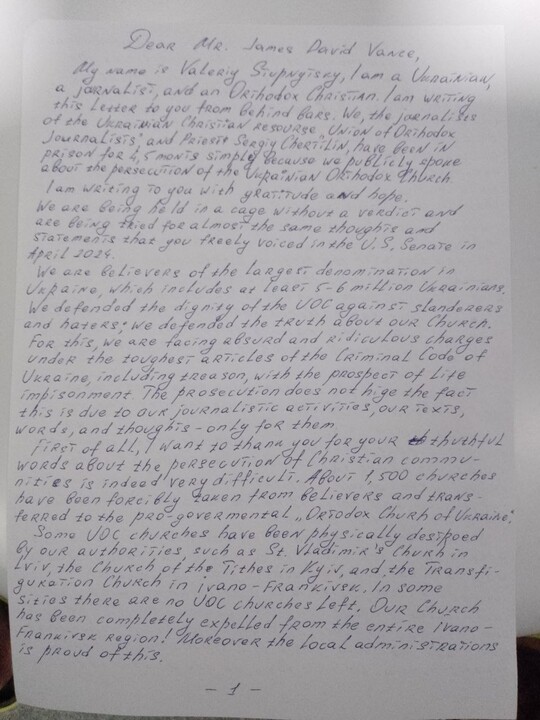 Dear Mr. James David Vance,
My name is Valeriy Stupnytsky, I am a Ukrainian,
a jornalist, and an Orthodox Christian. I am writing
this letter to you from behind bars. We, the jornalists
of the Ukrainian Christian resourse "Union of Orthodox
Journalists", and Priest Sergiy Chertilin, have been in
prison for 4,5 monts simply because we publicly spoke
about the persecution of the Ukrainian Orthodox Church.
I am writing to you with gratitude and hope.
We are being held in a cage without a verdict and
are being tried for almost the same thoughts and
statements that you freely voiced in the U.S. Senate in
April 2024.
We are believers of the largest denomination in
Ukraine, which includes at least 5-6 million Ukrainians.
We defended the dignity of the UOC against slanderers
and haters; we defended the truth about our Church.
For this, we are facing absurd and ridiculous charges
under the toughest articles of the Criminal Code of
Ukraine, including treason, with the prospect of life
impisonment. The prosecution does not hige the fact
this is due to our journalistic activities, our texts,
words, and thoughts - only for them.
First of all, I want to thank you for your thuthful
words about the persecution of Christian commu-
nities is indeed very difficult. About 1,500 churches
have been forcibly taken from believers and trans-
ferred to the pro-govermental „Ortodox Churh of Ukraine".
Some UOC churches have been physically destroed
by our authorities, such as St. Vladimir's Churh in
Lviv, the Church of the Tithes in Kyiv, and the Transfi-
guration Church in Ivano-Frankivsk. In some
sities there are no UOC churches left. Our Church
has been completely expelled from the entire Ivano-
Frankivsk region! Moreover the local administrations
is proud of this.
- 1 -